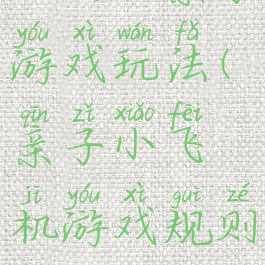 yóu xì wán fǎ
游戏玩法(
qīn zǐ xiǎo fēi
亲子小飞
jī yóu xì guī zé
机游戏规则